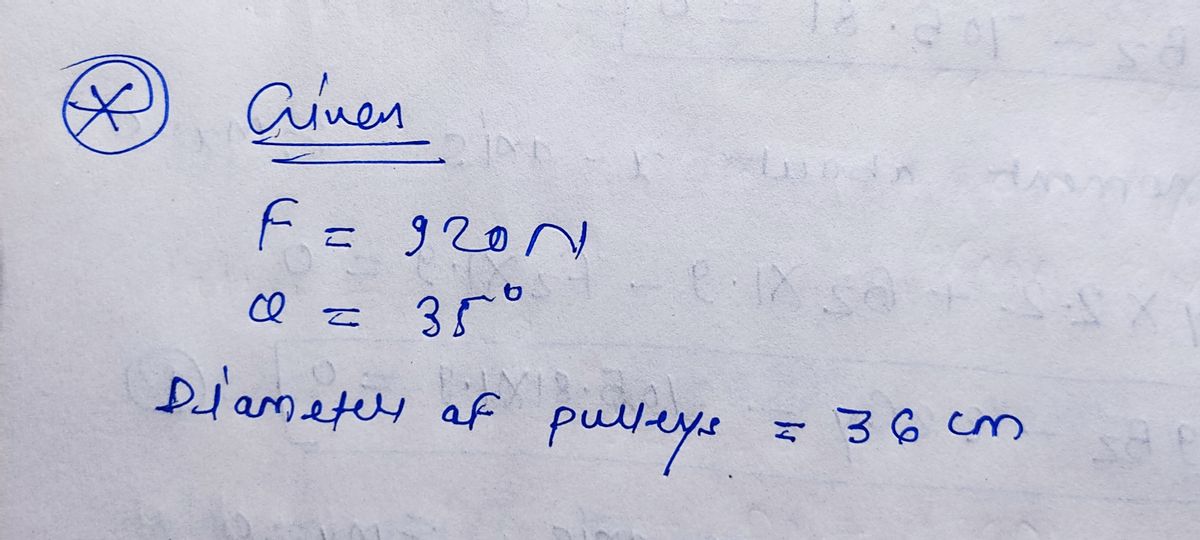 Given
F = 920 N
θ = 35°
Diameter of pulleys = 36 cm